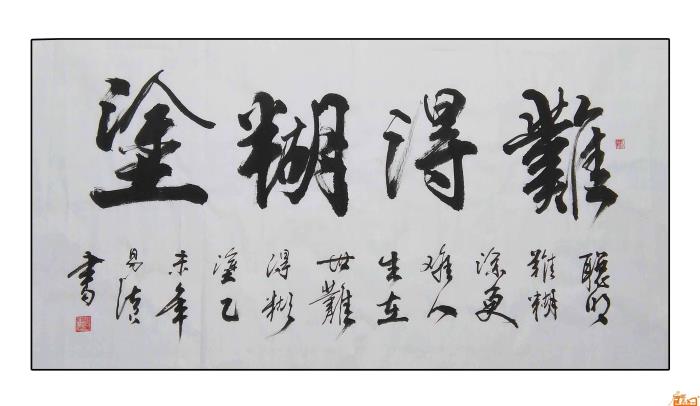 難得糊塗
聰明
難糊
涂更
难人
生在
世難
得糊
塗乙
未年
易
書